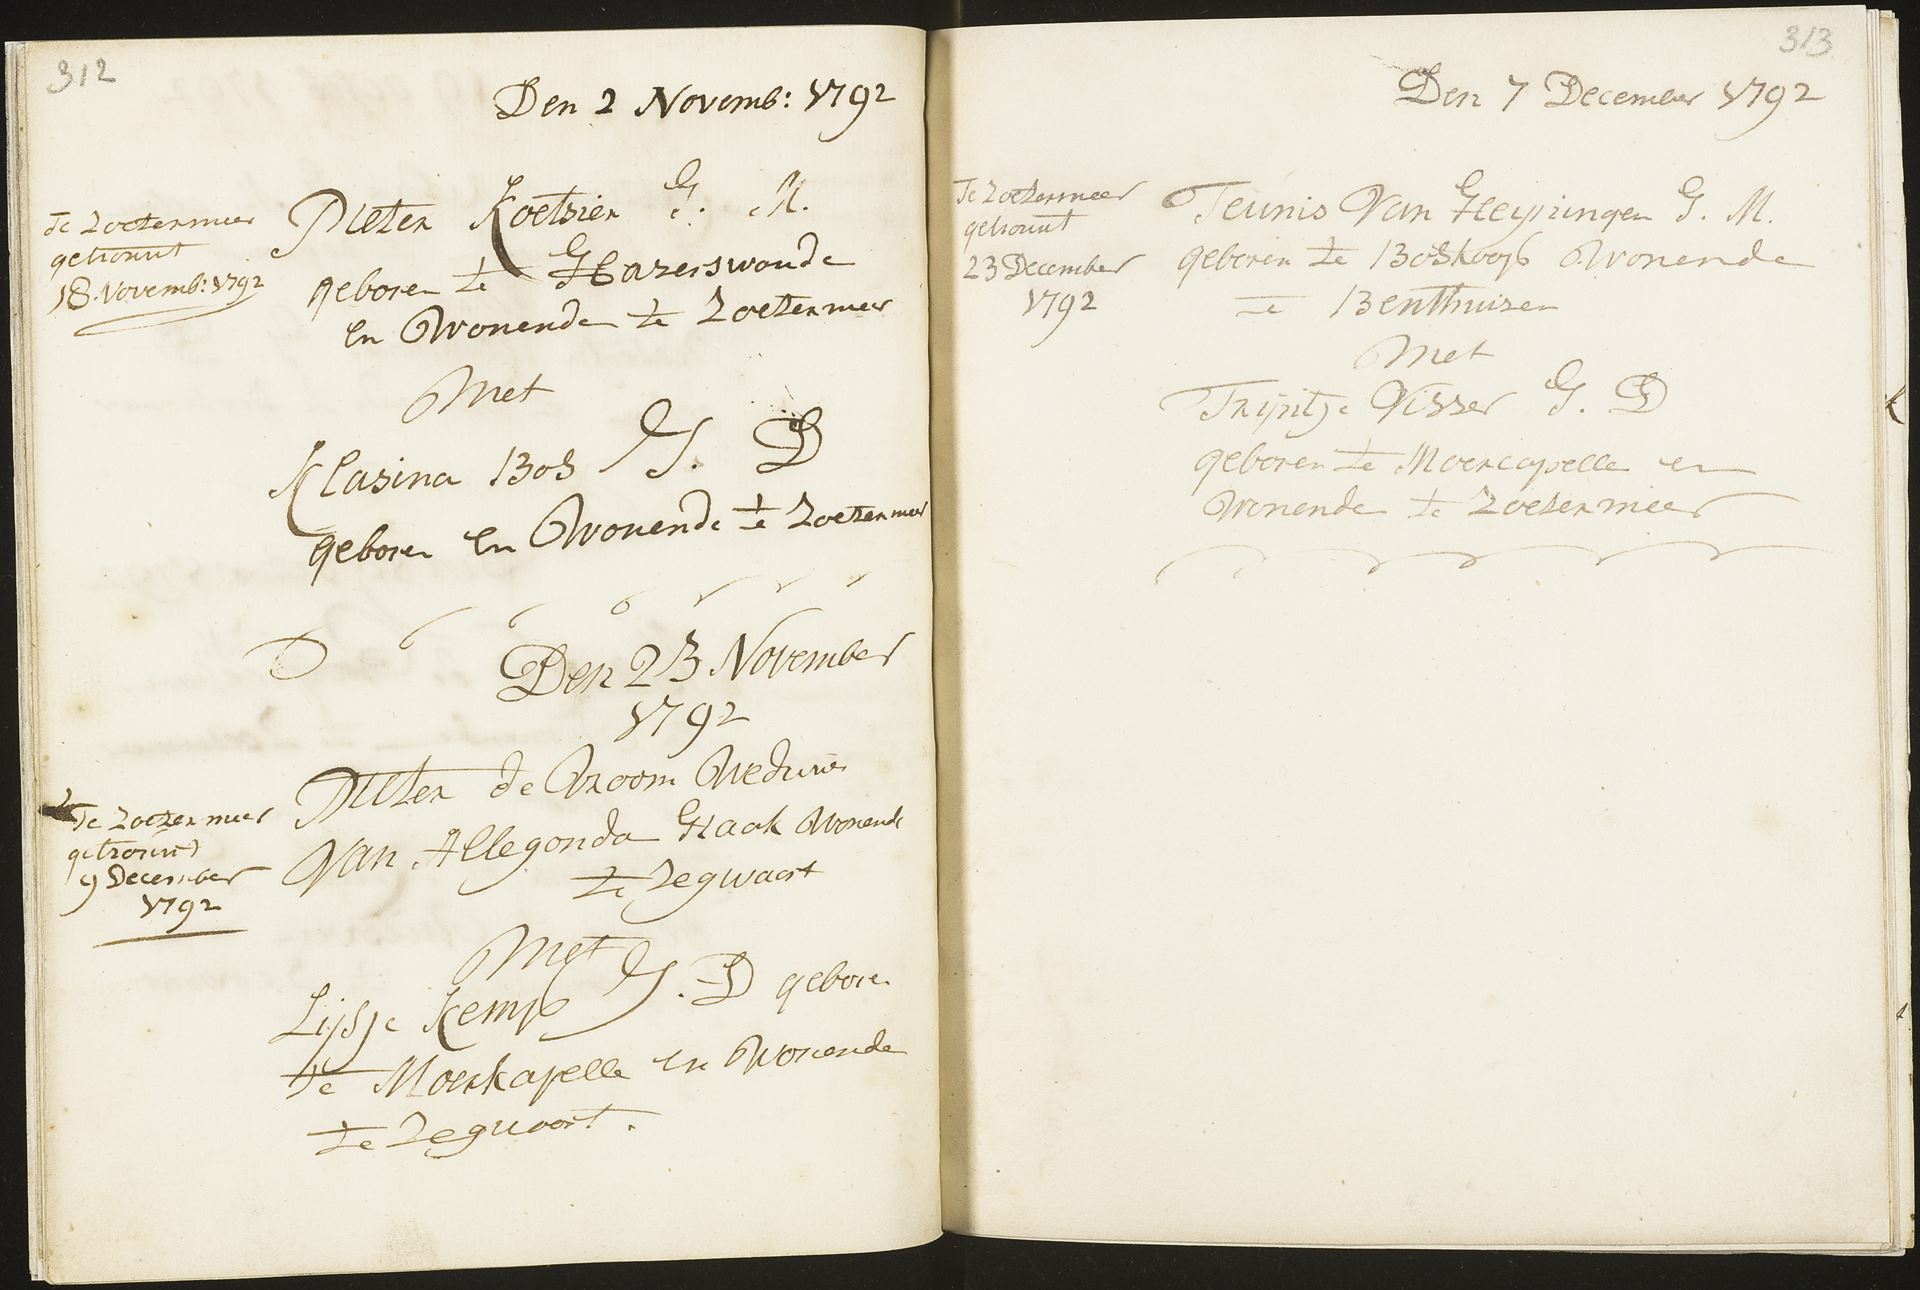 312
Den 2 Novemb: 1792
Te Zoetermeer
getrouut
18 Novemb: 1792
Pieter Koetsier G. M.
geboren te Hazerswoude
en Wonende te Zoetermeer
Met
Klasina Bos G. D
geboren en Wonende te Zoetermeer
Den 23 November
1792
Te Zoetermeer
getrouut
9 December
1792
Pieter de Vroom Weduwe
Van Allegonda Haak Wonende
te Zegwaart
Met
Lijsje Kemp G. D gebore
te Moerkapelle en Wonende
te Zegwaart.
313
Den 7 December 1792
Te Zoetermeer
getrouut
23 December
1792
Teunis Van G. M.
geboren te Boskoop Wonende
te Benthuizen
Met
Trijntje Visser G. D
geboren te Moercapelle en
Wonende te Zoetermeer